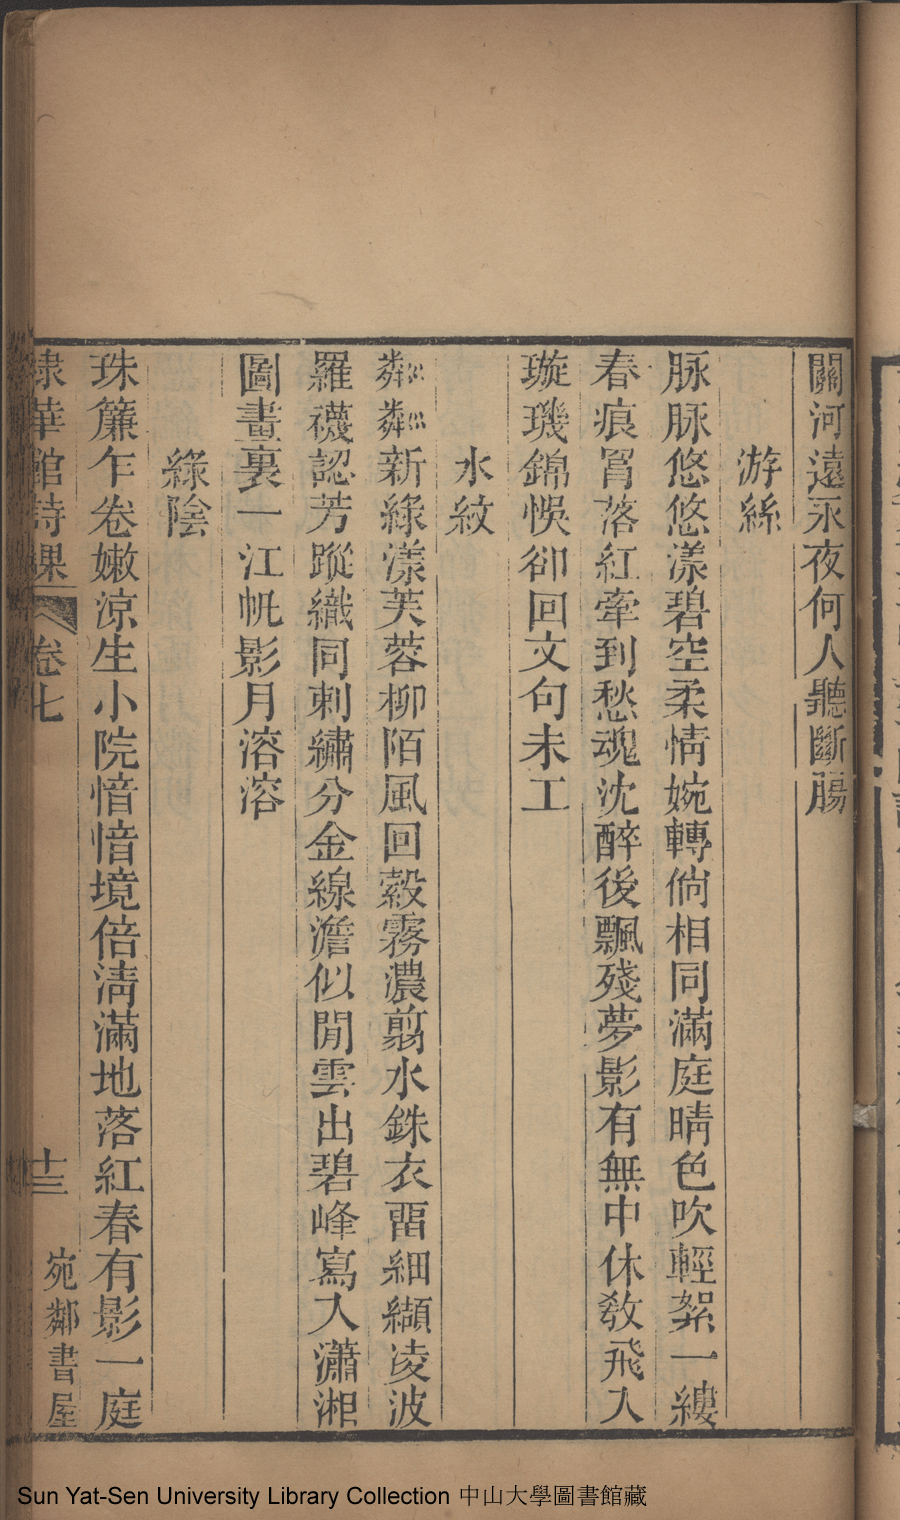 關河遠永夜何人聽斷腸
游絲
脉脉悠悠漾碧空柔情婉轉倘相同滿庭晴色吹輕絮一縷
春痕罥落紅牽到愁魂沈醉後飄殘夢影有無中休敎飛入
璇璣錦悞卻回文句未工
水紋
粼粼新綠漾芙蓉柳陌風回縠霧濃翦水銖衣畱細纈凌波
羅襪認芳蹤織同刺繡分金線澹似閒雲出碧峰寫入瀟湘
圖畫裏一江帆影月溶溶
綠陰
珠簾乍卷嫩涼生小院愔愔境倍淸滿地落紅春有影一庭
棣華館詩課 卷七 十三 宛鄰書屋
Sun Yat-Sen University Library Collection 中山大學圖書館藏